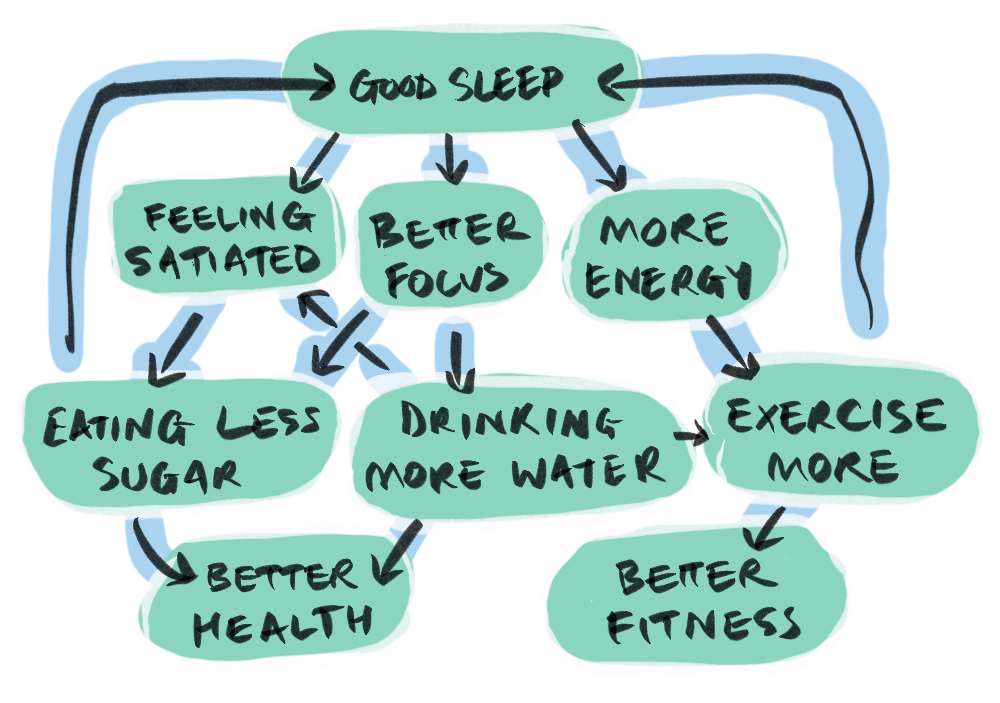 GOOD SLEEP
FEELING
SATIATED
BETTER
FOCUS
MORE
ENERGY
EATING LESS
SUGAR
DRINKING
MORE WATER
EXERCISE
MORE
BETTER
HEALTH
BETTER
FITNESS